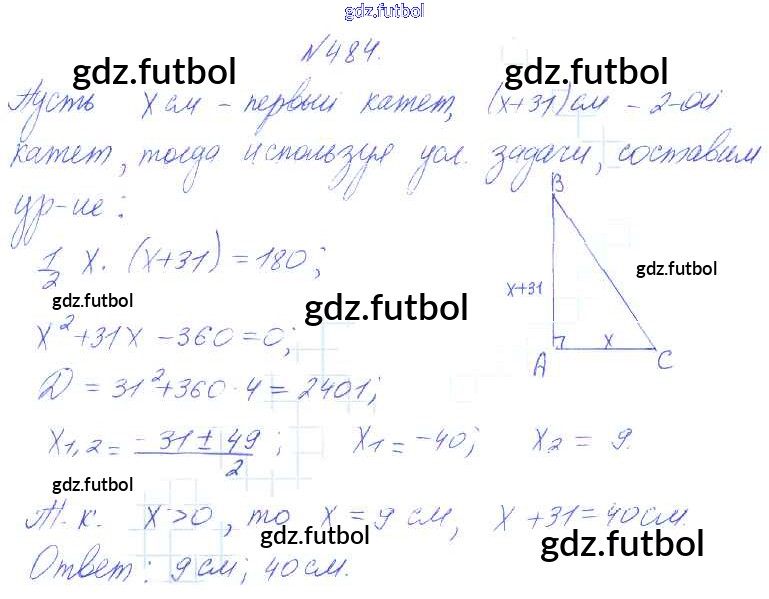 gdz.futbol
№484.
gdz.futbol gdz.futbol
Пусть x см - первый катет, (x+31) см - 2-ой
катет, тогда используя усл. задачи, составим
ур-ие:
B
1/2 x · (x+31) = 180;
gdz.futbol
x+31
gdz.futbol gdz.futbol
x² + 31x - 360 = 0;
x
A C
D = 31² + 360 · 4 = 2401;
x1,2 = (-31 ± 49)/2; x1 = -40; x2 = 9.
gdz.futbol
Т.к. x > 0, то x = 9 см, x + 31 = 40 см.
gdz.futbol gdz.futbol
Ответ: 9 см; 40 см.